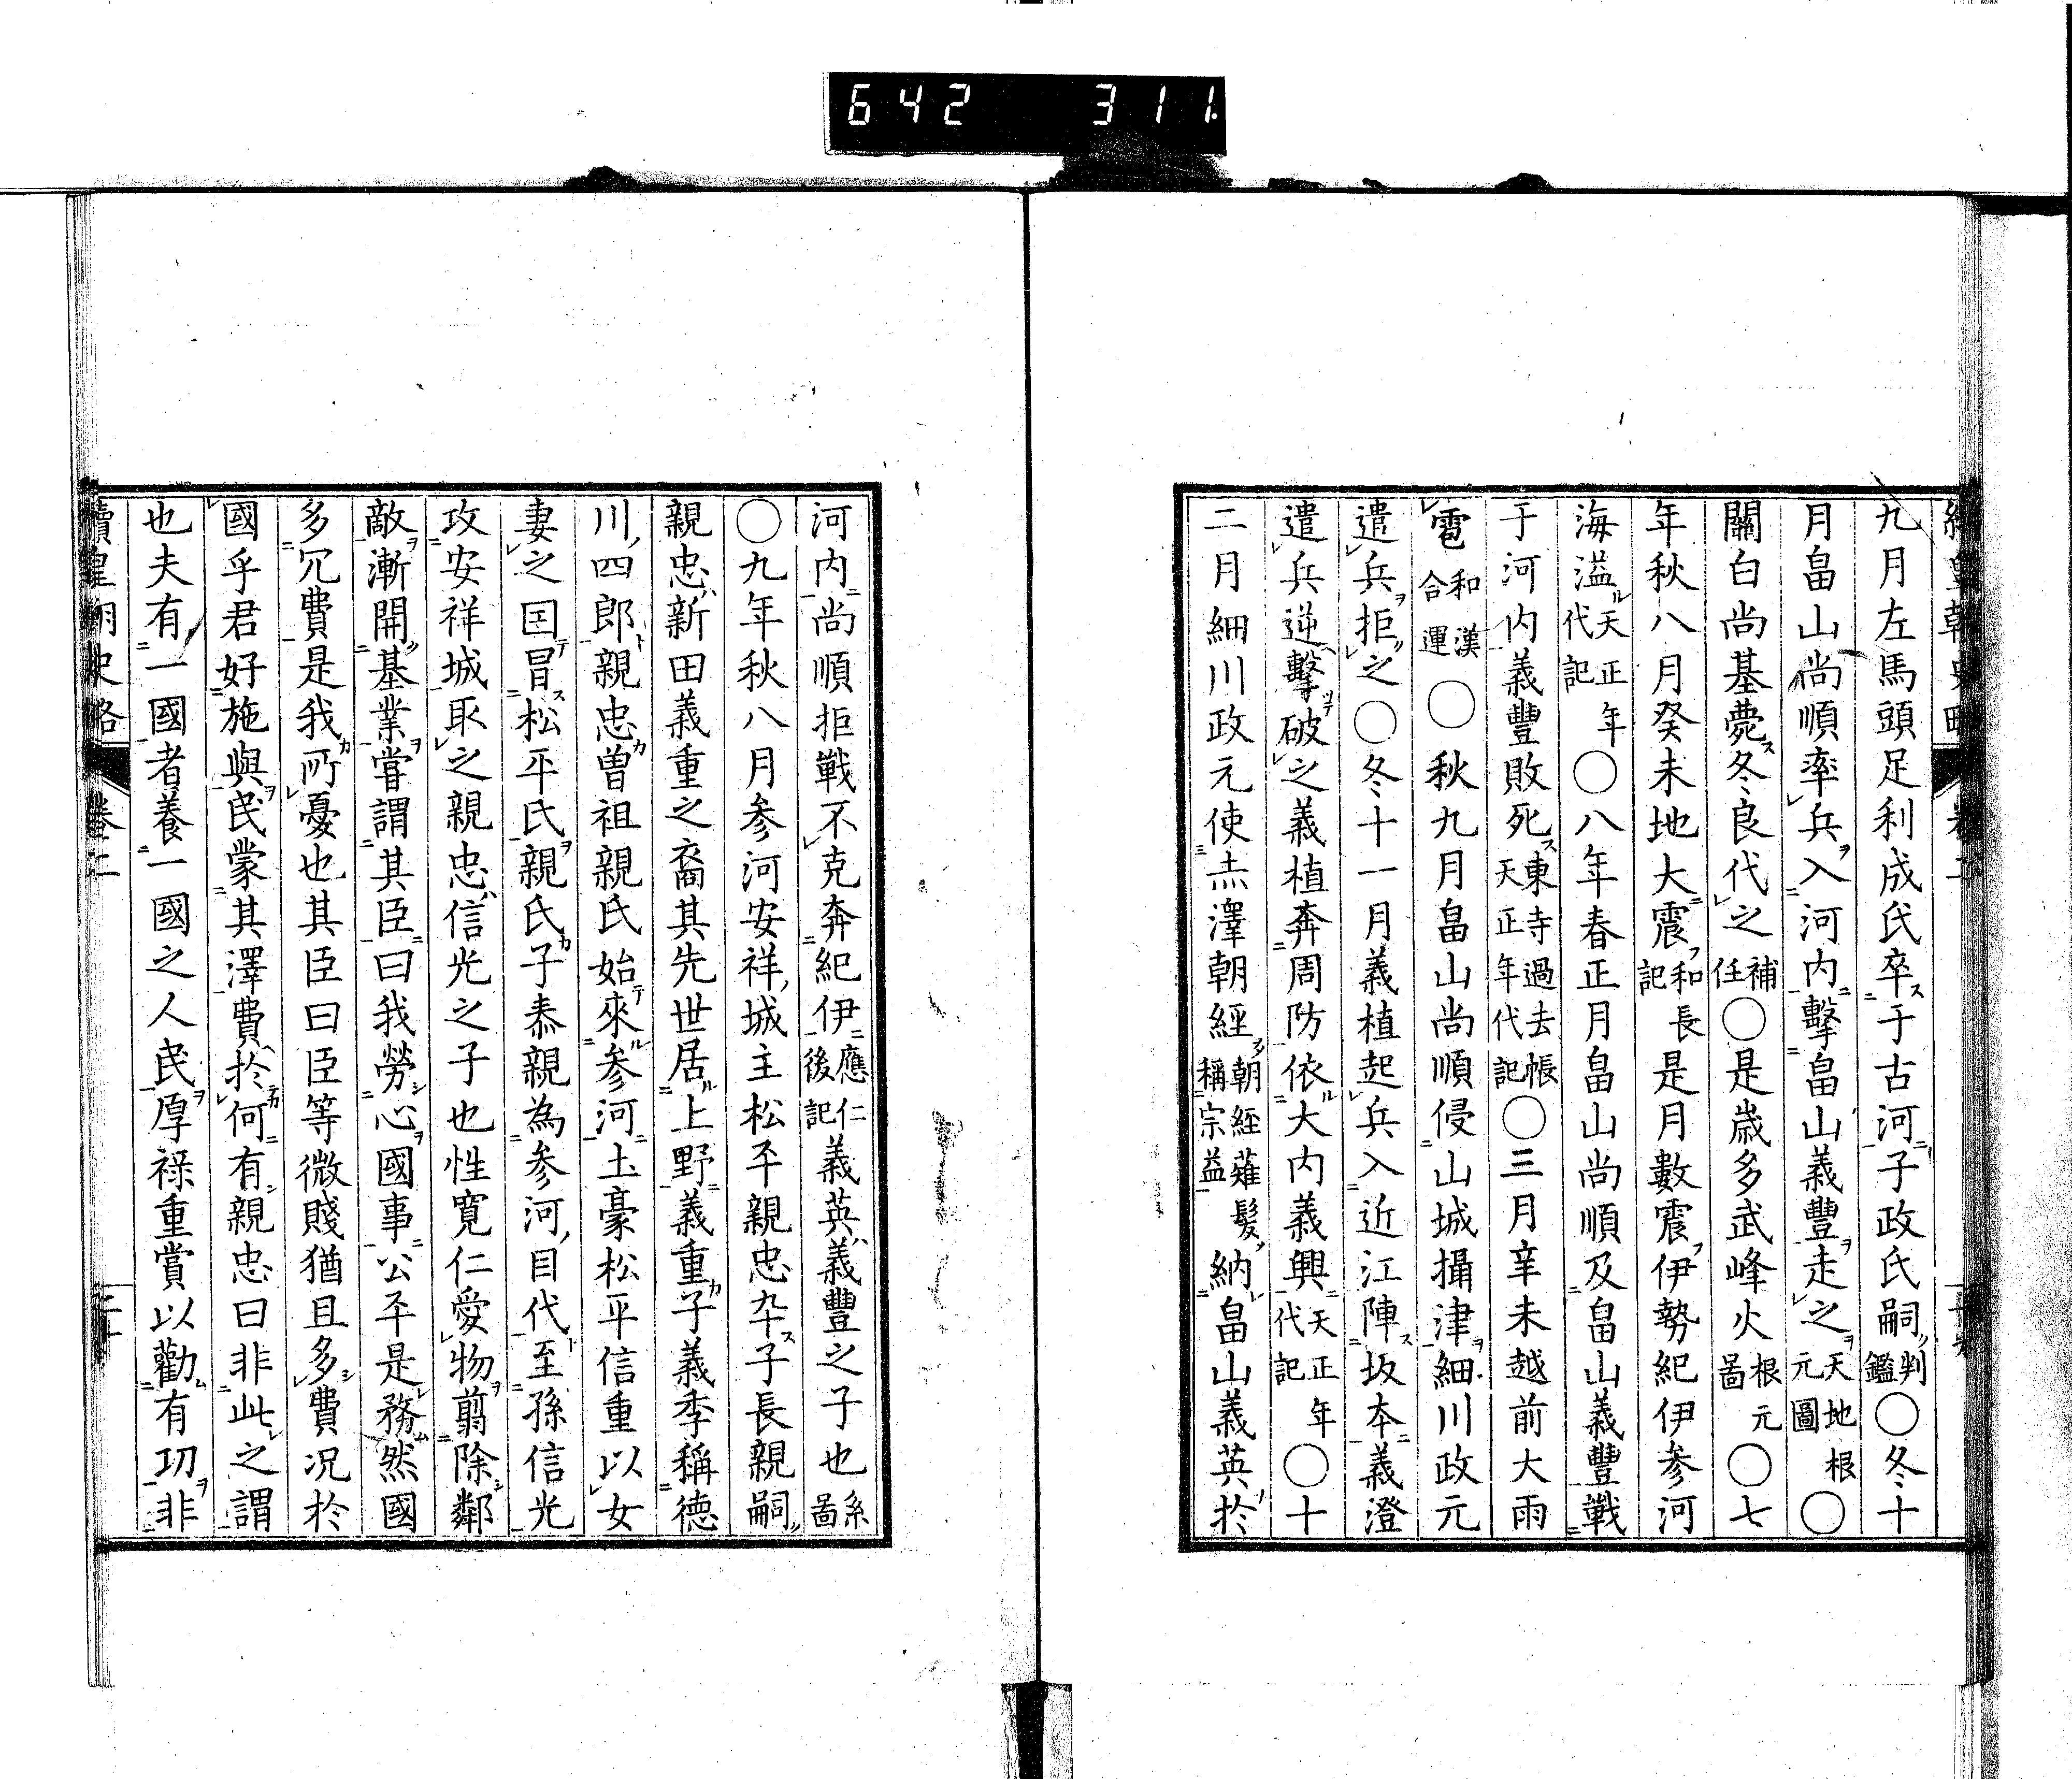 642 311.
九月左馬頭足利成氏卒于古河子政氏嗣判鑑〇冬十
月畠山尚順率兵入河内擊畠山義豐走之天地根元圖〇
關白尚基薨冬良代之補任〇是歲多武峰火根元啚〇七
年秋八月癸未地大震和長記是月數震伊勢紀伊参河
海溢天正年代記〇八年春正月畠山尚順及畠山義豐戰
于河内義豐敗死東寺過去帳天正年代記〇三月辛未越前大雨
雹和漢合運〇秋九月畠山尚順侵山城攝津細川政元
遣兵拒之〇冬十一月義植起兵入近江陣坂本義澄
遣兵逆擊破之義植奔周防依大内義興天正年代記〇十
二月細川政元使赤澤朝經朝經薙髮稱宗益納畠山義英於
河内尚順拒戰不克奔紀伊應仁後記義英義豐之子也系啚
〇九年秋八月参河安祥城主松平親忠卒子長親嗣
親忠新田義重之裔其先世居上野義重子義季稱德
川四郎親忠曾祖親氏始來参河土豪松平信重以女
妻之因冒松平氏親氏子泰親為参河目代至孫信光
攻安祥城取之親忠信光之子也性寬仁愛物翦除鄰
敵漸開基業嘗謂其臣曰我勞心國事公平是務然國
多冗費是我所憂也其臣曰臣等微賤猶且多費况於
國乎君好施與民蒙其澤費於何有親忠曰非此之謂
也夫有一國者養一國之人民厚祿重賞以勸有功非
續皇朝史略 卷二